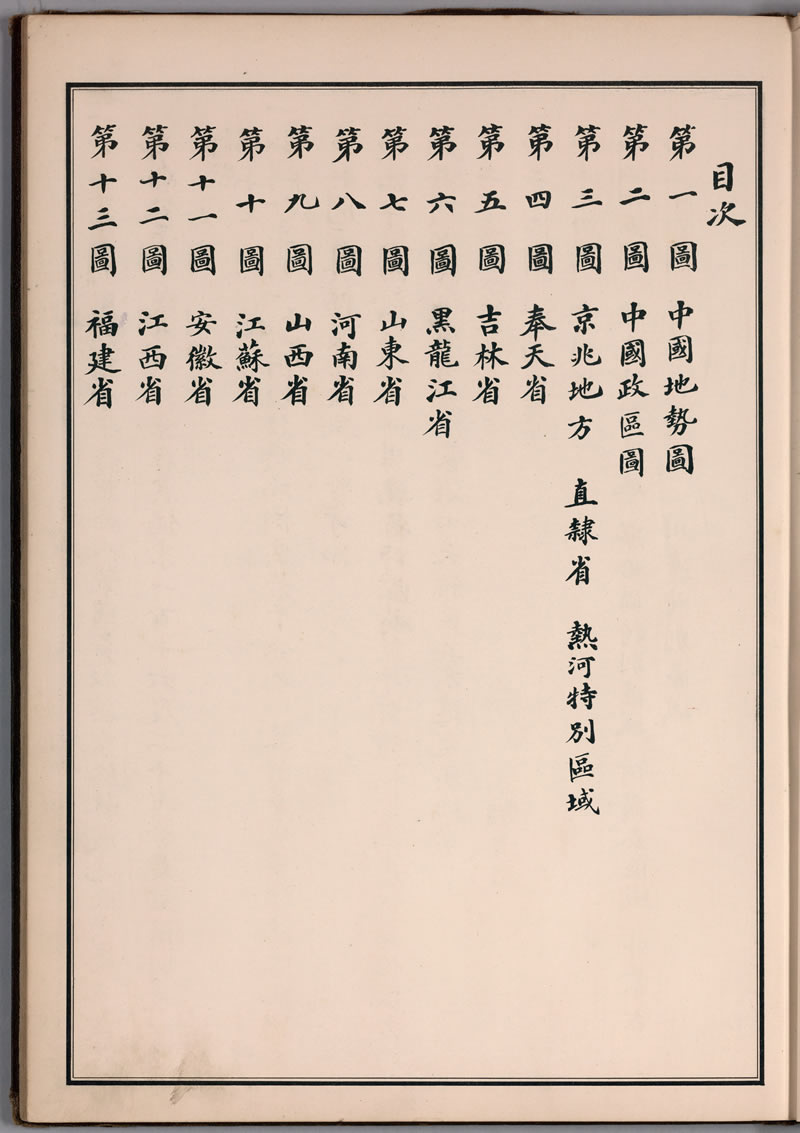 目次
第一圖 中國地勢圖
第二圖 中國政區圖
第三圖 京兆地方 直隸省 熱河特別區域
第四圖 奉天省
第五圖 吉林省
第六圖 黑龍江省
第七圖 山東省
第八圖 河南省
第九圖 山西省
第十圖 江蘇省
第十一圖 安徽省
第十二圖 江西省
第十三圖 福建省